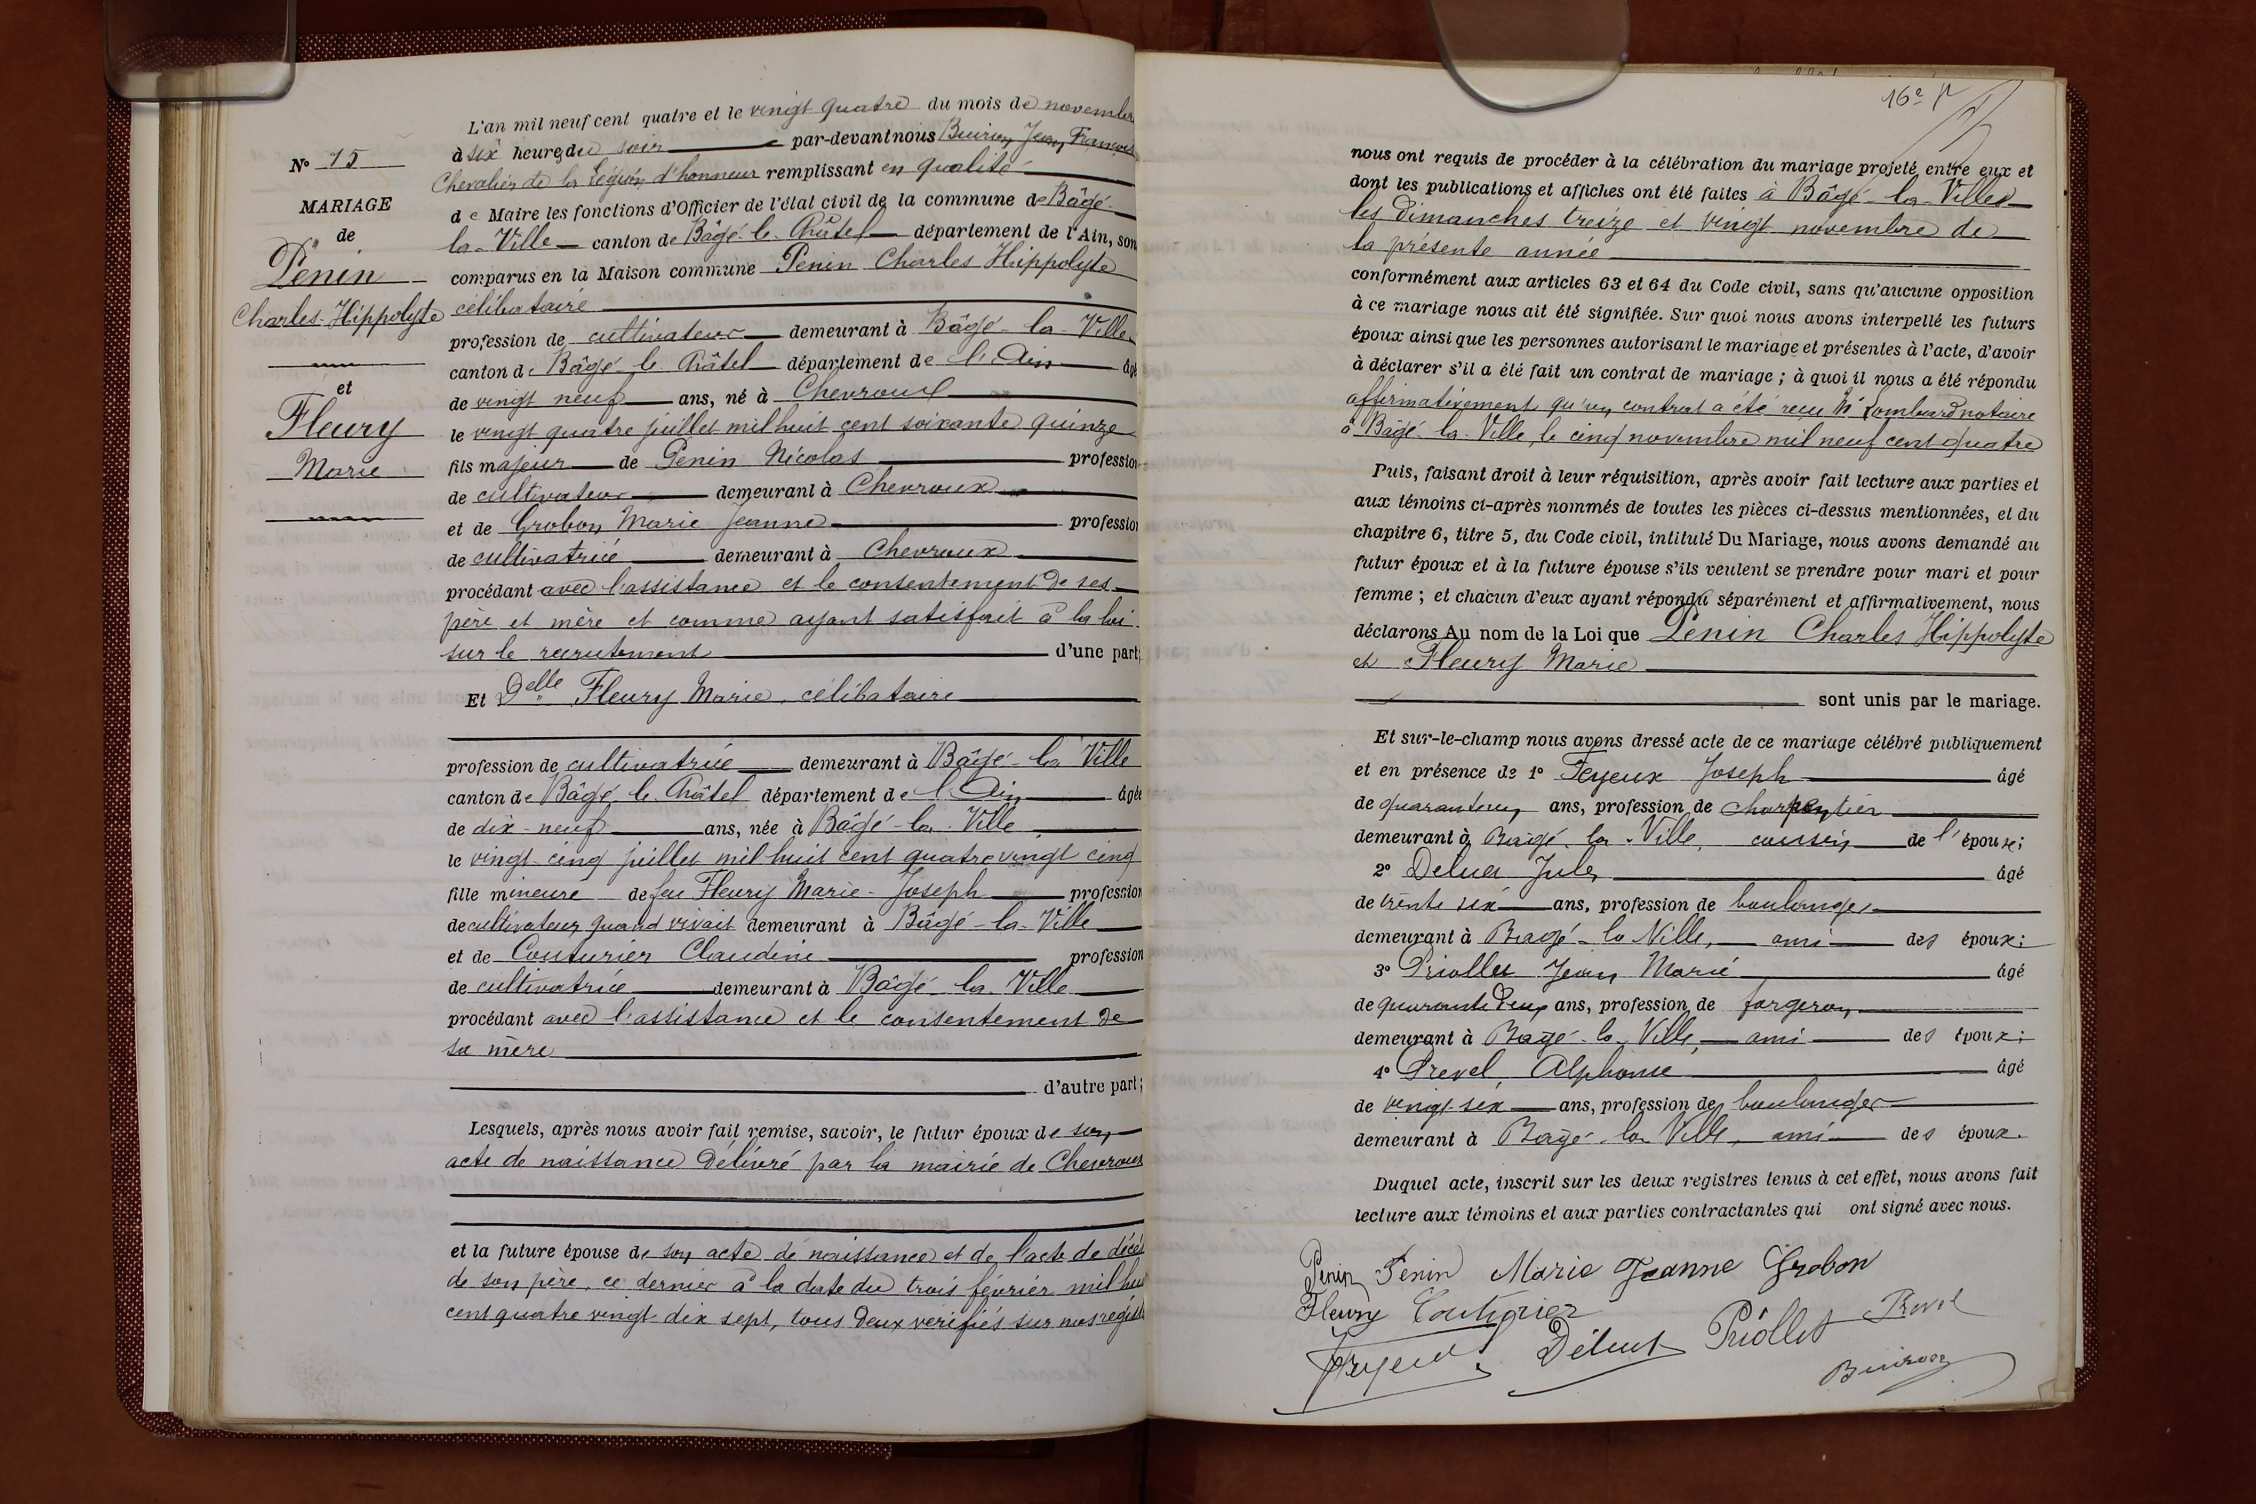 N° 15
MARIAGE
de
Penin
Charles-Hippolyte
et
Fleury
Marie
L'an mil neuf cent quatre et le vingt quatre du mois de novembre
à six heures du soir par-devant nous Buiron Jean François
Chevalier de la Légion d'honneur remplissant en qualité
de Maire les fonctions d'Officier de l'état civil de la commune de Bâgé-
la-Ville canton de Bâgé-le-Châtel département de l'Ain, son
comparus en la Maison commune Penin Charles Hippolyte
célibataire
profession de cultivateur demeurant à Bâgé-la-Ville
canton de Bâgé-le-Châtel département de l'Ain âgé
de vingt neuf ans, né à Chevroux
le vingt quatre juillet mil huit cent soixante quinze
fils majeur de Penin Nicolas profession
de cultivateur demeurant à Chevroux
et de Grobon Marie Jeanne profession
de cultivatrice demeurant à Chevroux
procédant avec l'assistance et le consentement de ses
père et mère et comme ayant satisfait à la loi
sur le recrutement d'une part;
Et Delle Fleury Marie, célibataire
profession de cultivatrice demeurant à Bâgé-la-Ville
canton de Bâgé-le-Châtel département de l'Ain âgée
de dix-neuf ans, née à Bâgé-la-Ville
le vingt-cinq juillet mil huit cent quatre vingt cinq
fille mineure de feu Fleury Marie-Joseph profession
de cultivateur quand vivait demeurant à Bâgé-la-Ville
et de Couturier Claudine profession
de cultivatrice demeurant à Bâgé-la-Ville
procédant avec l'assistance et le consentement de
sa mère
d'autre part;
Lesquels, après nous avoir fait remise, savoir, le futur époux de son
acte de naissance délivré par la mairie de Chevroux
et la future épouse de son acte de naissance et de l'acte de décès
de son père, ce dernier à la date du trois février mil hui
cent quatre vingt-dix sept, tous deux vérifiés sur nos régist
16e
nous ont requis de procéder à la célébration du mariage projeté entre eux et
dont les publications et affiches ont été faites à Bâgé-la-Ville
les dimanches treize et vingt novembre de
la présente année
conformément aux articles 63 et 64 du Code civil, sans qu'aucune opposition
à ce mariage nous ait été signifiée. Sur quoi nous avons interpellé les futurs
époux ainsi que les personnes autorisant le mariage et présentes à l'acte, d'avoir
à déclarer s'il a été fait un contrat de mariage ; à quoi il nous a été répondu
affirmativement qu'un contrat a été reçu Me Lombard notaire
à Bâgé-la-Ville, le cinq novembre mil neuf cent quatre
Puis, faisant droit à leur réquisition, après avoir fait lecture aux parties et
aux témoins ci-après nommés de toutes les pièces ci-dessus mentionnées, et du
chapitre 6, titre 5, du Code civil, intitulé Du Mariage, nous avons demandé au
futur époux et à la future épouse s'ils veulent se prendre pour mari et pour
femme ; et chacun d'eux ayant répondu séparément et affirmativement, nous
déclarons Au nom de la Loi que Penin Charles Hippolyte
et Fleury Marie
sont unis par le mariage.
Et sur-le-champ nous avons dressé acte de ce mariage célébré publiquement
et en présence de 1° Feyeux Joseph âgé
de quarante un ans, profession de charpentier
demeurant à Bagé-la-Ville, cousin de l'époux;
2° Delust Jules âgé
de trente six ans, profession de boulanger
demeurant à Bagé-la Ville, ami des époux;
3° Priollet Jean Marie âgé
de quarante deux ans, profession de forgeron
demeurant à Bagé-la-Ville, ami des époux;
4° Prevel, Alphonse âgé
de vingt-six ans, profession de boulanger
demeurant à Bagé-la Ville, ami des époux.
Duquel acte, inscrit sur les deux registres tenus à cet effet, nous avons fait
lecture aux témoins et aux parties contractantes qui ont signé avec nous.
Penin Penin Marie Jeanne Grobon
Fleury Couturier
Feyeux Délust Priollet Prevel
Buiron